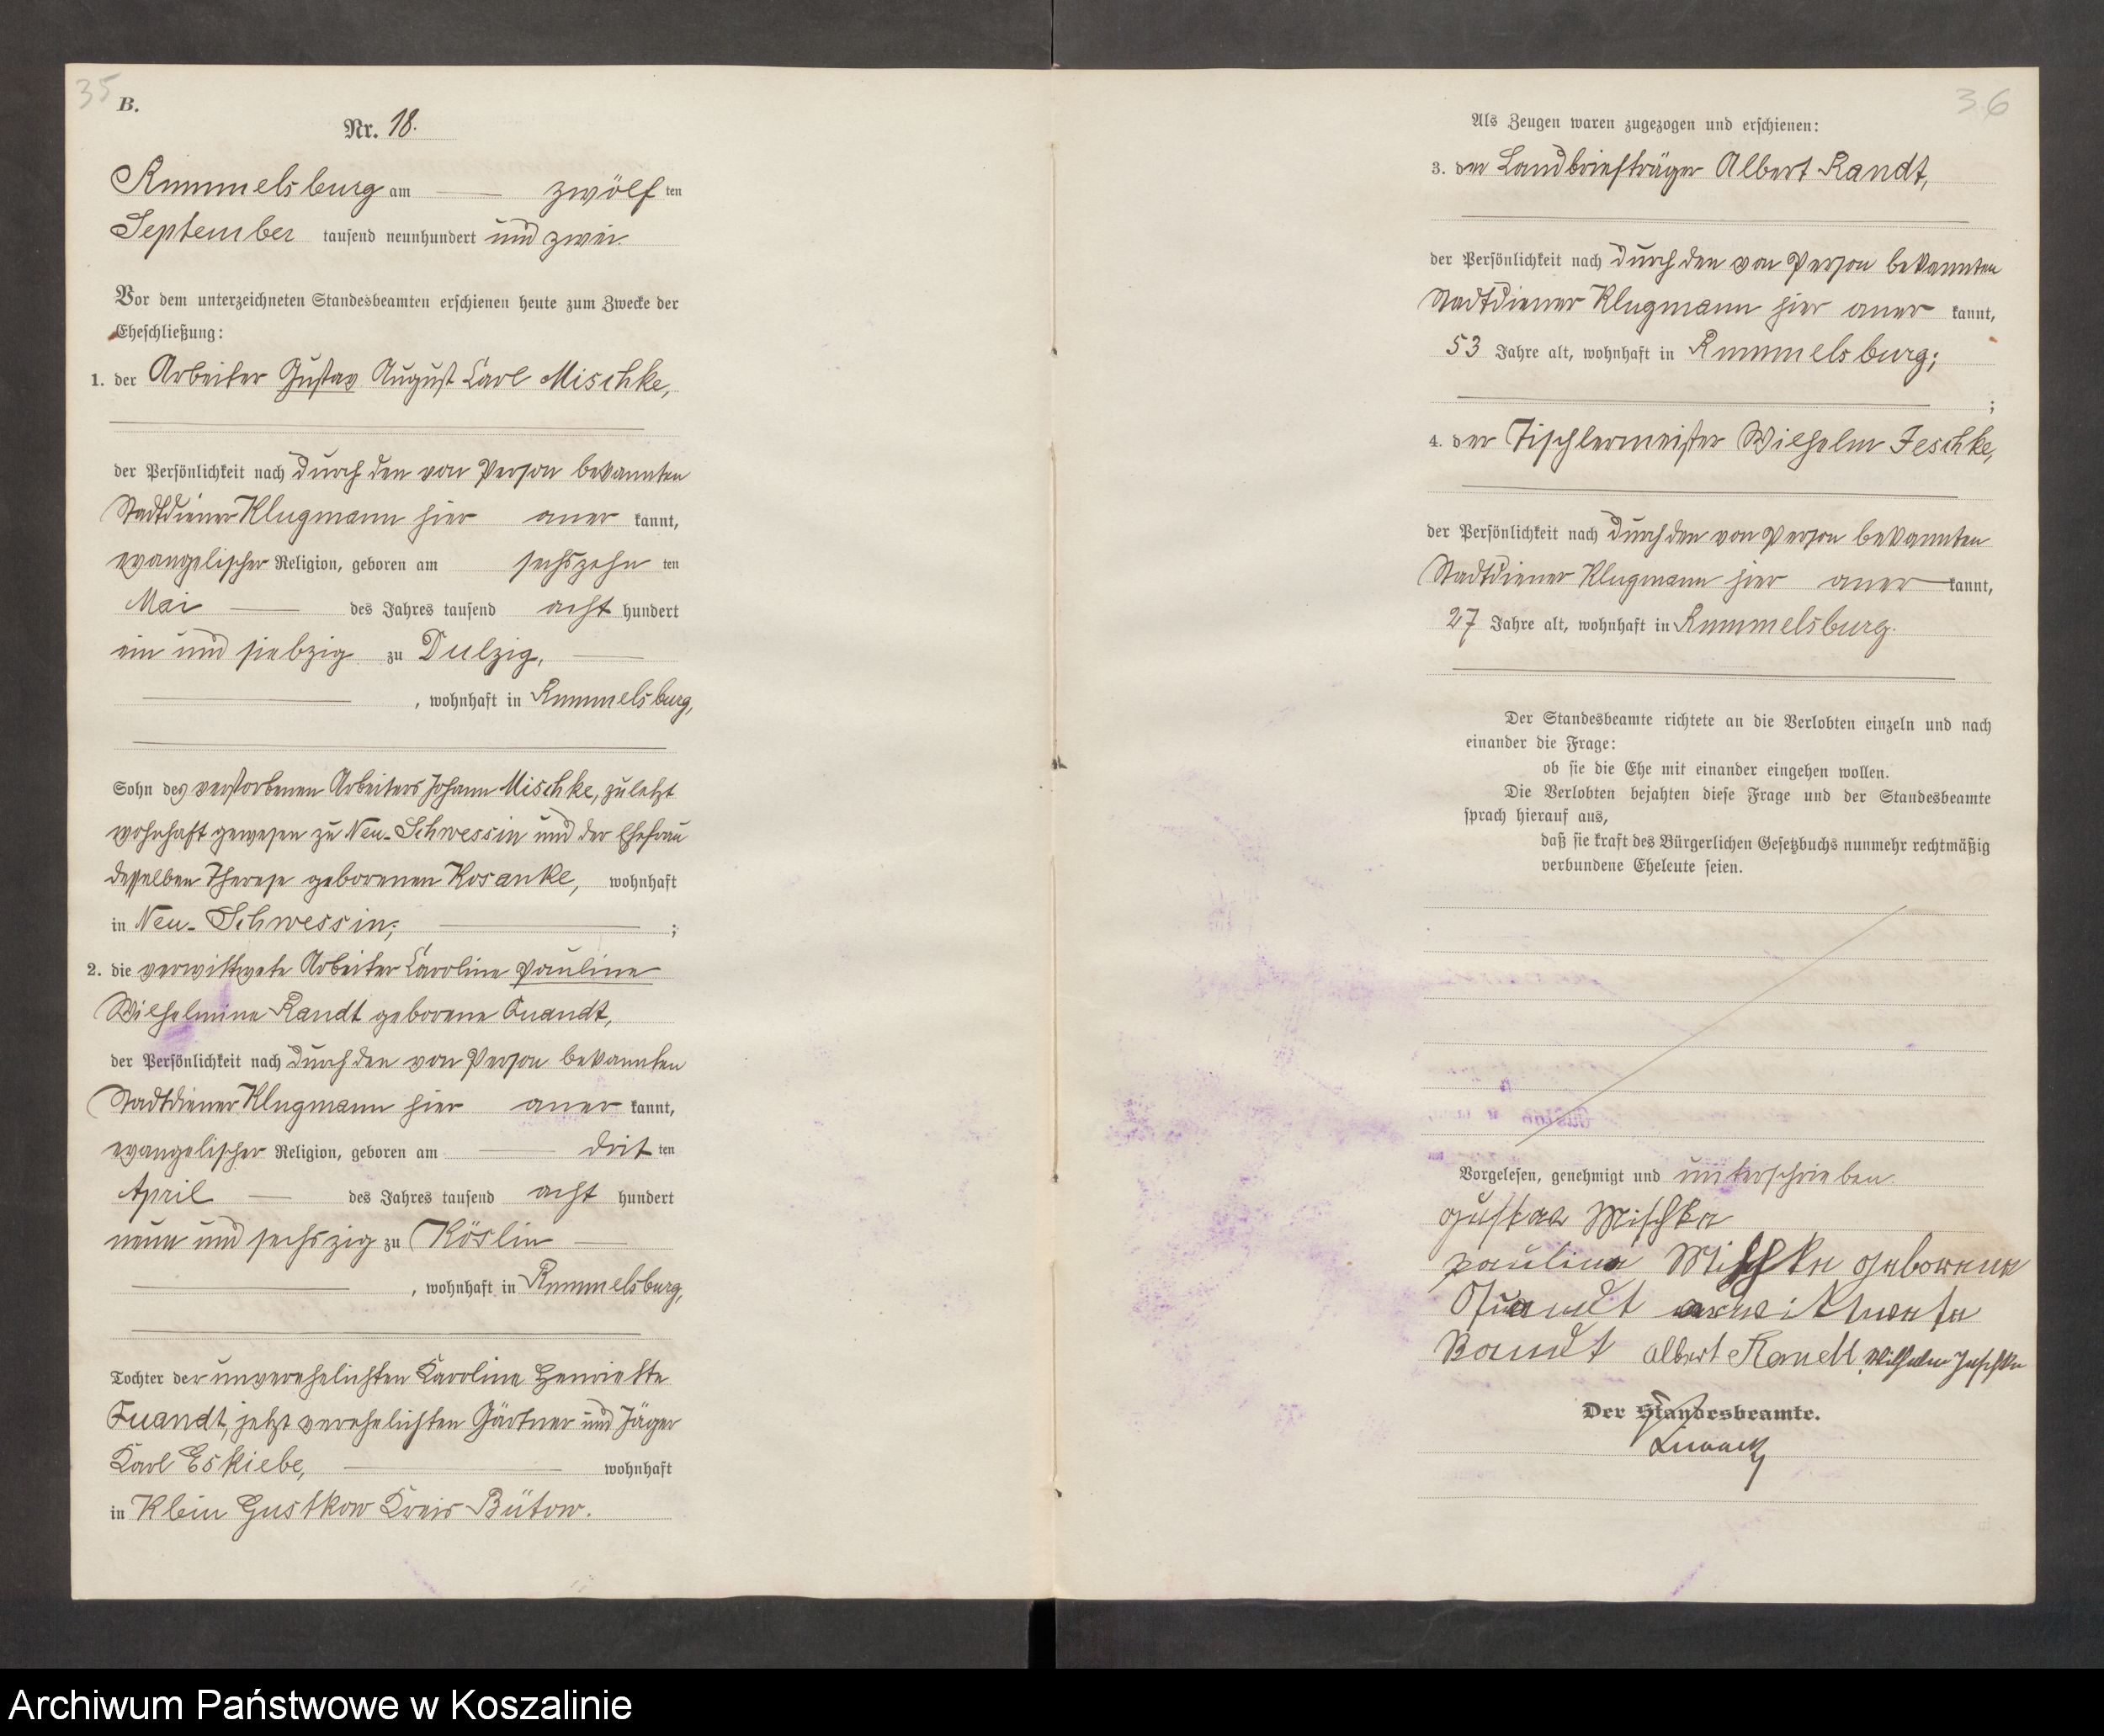 35
B.
Nr. 18.
Rummelsburg am zwölf ten
September tausend neunhundert und zwei.
Vor dem unterzeichneten Standesbeamten erschienen heute zum Zwecke der
Eheschließung:
1. der Arbeiter Gustav August Carl Mischke,
der Persönlichkeit nach durch den von Person bekannten
Stadtdiener Klugmann hier aner kannt,
evangelischer Religion, geboren am sechszehn ten
Mai des Jahres tausend acht hundert
ein und siebzig zu Dulzig,
, wohnhaft in Rummelsburg,
Sohn des verstorbenen Arbeiters Johann Mischke, zuletzt
wohnhaft gewesen zu Neu-Schwessin und der Ehefrau
desselben Therese geborenen Kosanke, wohnhaft
in Neu-Schwessin; ;
2. die verwittwete Arbeiter Caroline Pauline
Wilhelmine Randt geborene Quandt,
der Persönlichkeit nach durch den von Person bekannten
Stadtdiener Klugmann hier aner kannt,
evangelischer Religion, geboren am drit ten
April des Jahres tausend acht hundert
neun und sechszig zu Köslin
, wohnhaft in Rummelsburg,
Tochter der unverehelichten Karoline Henriette
Quandt, jetzt verehelichten Gärtner und Jäger
Karl Eskiebe, wohnhaft
in Klein Gustkow Kreis Bütow.
36
Als Zeugen waren zugezogen und erschienen:
3. der Landbriefträger Albert Randt,
der Persönlichkeit nach durch den von Person bekannten
Stadtdiener Klugmann hier aner kannt,
53 Jahre alt, wohnhaft in Rummelsburg;
;
4. der Tischlermeister Wilhelm Jeschke,
der Persönlichkeit nach durch den von Person bekannten
Stadtdiener Klugmann hier aner kannt,
27 Jahre alt, wohnhaft in Rummelsburg.
Der Standesbeamte richtete an die Verlobten einzeln und nach
einander die Frage:
ob sie die Ehe mit einander eingehen wollen.
Die Verlobten bejahten diese Frage und der Standesbeamte
sprach hierauf aus,
daß sie kraft des Bürgerlichen Gesetzbuchs nunmehr rechtmäßig
verbundene Eheleute seien.
Vorgelesen, genehmigt und unterschrieben.
Gustav Mischke
Pauline Mischke geborene
Quandt verwittwete
Randt Albert Randt Wilhelm Jeschke
Der Standesbeamte.
Archiwum Państwowe w Koszalinie